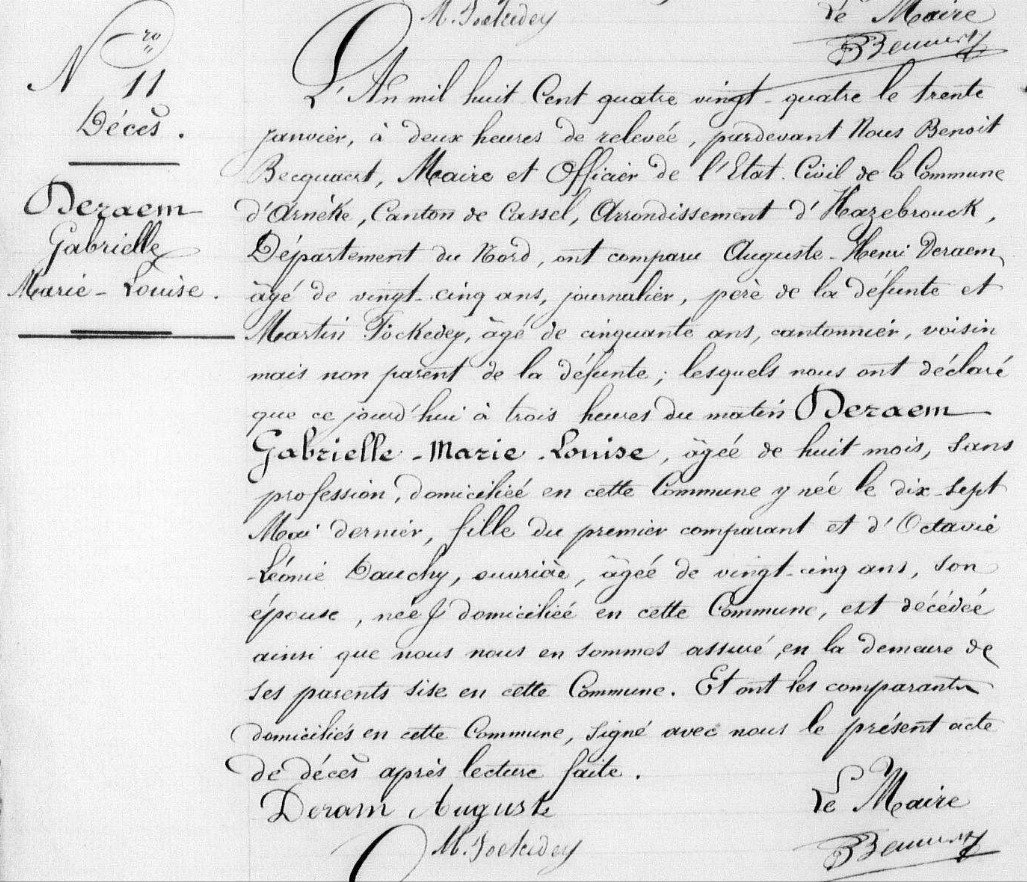 M. Fockedey
Le Maire
BBecquaert
N ro 11
Décès.
Deraem
Gabrielle
Marie-Louise.
L'An mil huit Cent quatre vingt-quatre le trente
janvier, à deux heures de relevée, pardevant Nous Benoit
Becquaert, Maire et Officier de l'Etat-Civil de la Commune
d'Arnèke, Canton de Cassel, Arrondissement d'Hazebrouck,
Département du Nord, ont comparu Auguste-Henri Deraem,
âgé de vingt-cinq ans, journalier, père de la défunte et
Martin Fockedey, âgé de cinquante ans, cantonnier, voisin
mais non parent de la défunte; lesquels nous ont déclaré
que ce jourd'hui à trois heures du matin Deraem
Gabrielle-Marie-Louise, âgée de huit mois, sans
profession, domiciliée en cette Commune y née le dix-sept
Mai dernier, fille du premier comparant et d'Octavie
Léonie Dauchy, ouvrière, âgée de vingt-cinq ans, son
épouse, née & domiciliée en cette Commune, est décédée
ainsi que nous nous en sommes assuré, en la demeure de
ses parents sise en cette Commune. Et ont les comparants
domiciliés en cette Commune, signé avec nous le présent acte
de décès après lecture faite.
Deram Auguste
Le Maire
M. Fockedey
BBecquaert